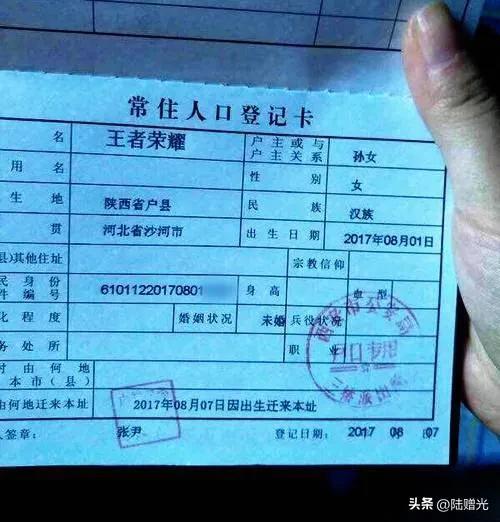 常住人口登记卡
名 王者荣耀 户主或与户主关系 孙女
用名 性别 女
生地 陕西省户县 民族 汉族
贯 河北省沙河市 出生日期 2017年08月01日
县)其他住址 宗教信仰
民身份件编号 61011220170801 身高 血型
化程度 婚姻状况 未婚 兵役状况
务处所 职业
时由何地本市(县)
由何地迁来本址 2017年08月07日因出生迁来本址
人签章: 张尹 登记日期: 2017 08 07
户口专用
头条 @陆赠光